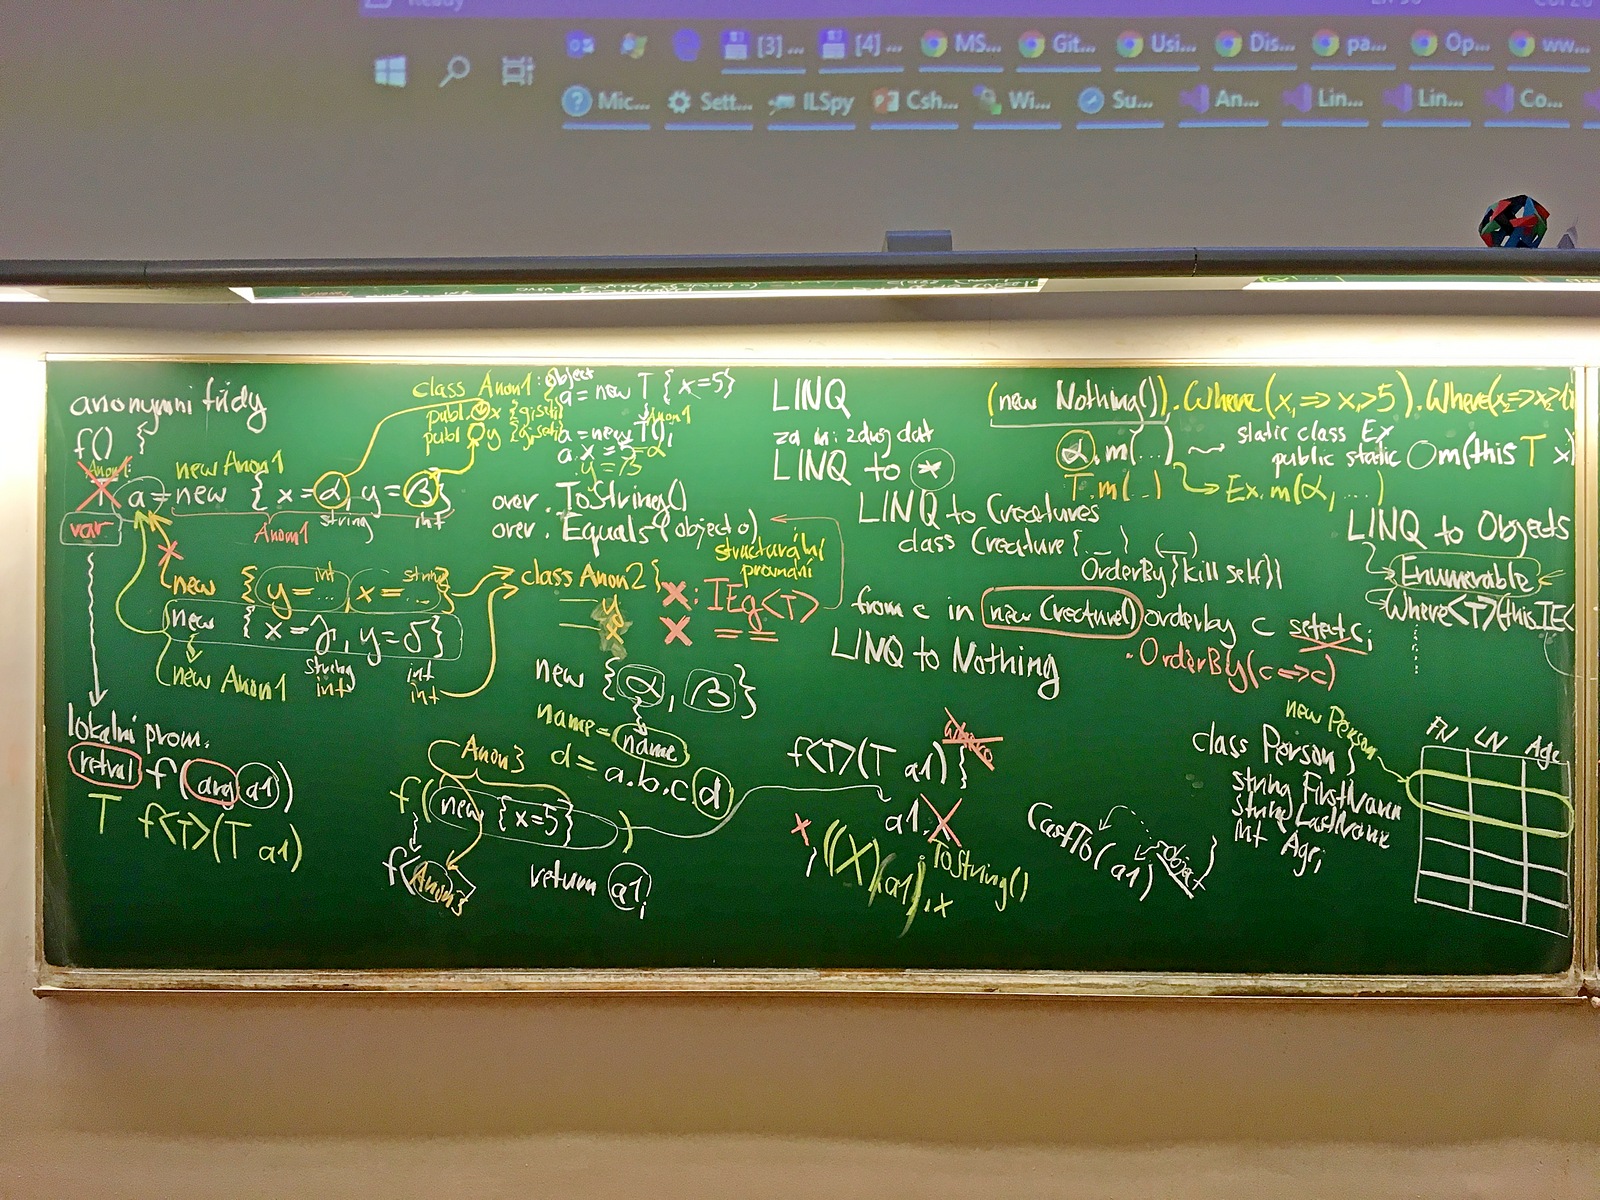 Ready
[3] ...
[4] ...
MS...
Git...
Usi...
Dis...
pa...
Op...
ww...
Mic...
Sett...
ILSpy
Csh...
Wi...
Su...
An...
Lin...
Lin...
Co...
anonymní třídy
f() {
Anon1
a = new { x = α, y = β }
new Anon1
string
int
var
Anon1
class Anon1 : object
publ. x {g;set;}
publ. y {g;set;}
a = new T { x=5 }
Anon1
a = new T();
a.x = 5 = α
.y = β
over. ToString()
over. Equals(object o)
strukturální
new { y = ..., x = ... }
int
string
class Anon2 {
y
x
: IEq<T>
= =
new { x = γ, y = δ }
string
int
int
int
new Anon1
new { α, β }
name = name
d = a.b.c.d
lokální prom.
retval f(arg a1)
T f<T>(T a1)
Anon3
f( new { x=5 } )
f<Anon3>
return a1;
f<T>(T a1) {
a1.
((X)a1).x
ToString()
CastTo(a1, Object)
LINQ
LINQ to *
LINQ to Creatures
class Creature { }
OrderBy {kill self}
from c in new Creature() orderby c select c;
.OrderBy(c=>c)
LINQ to Nothing
(new Nothing()).Where(x => x>5).Where(
α.m(...)
static class Ex
public static m(this T x)
T.m(..)
Ex.m(α, ...)
LINQ to Objects
Enumerable
Where<T>(this IE<
new Person
class Person {
string FirstName
string LastName
int Age;
}
FN LN Age